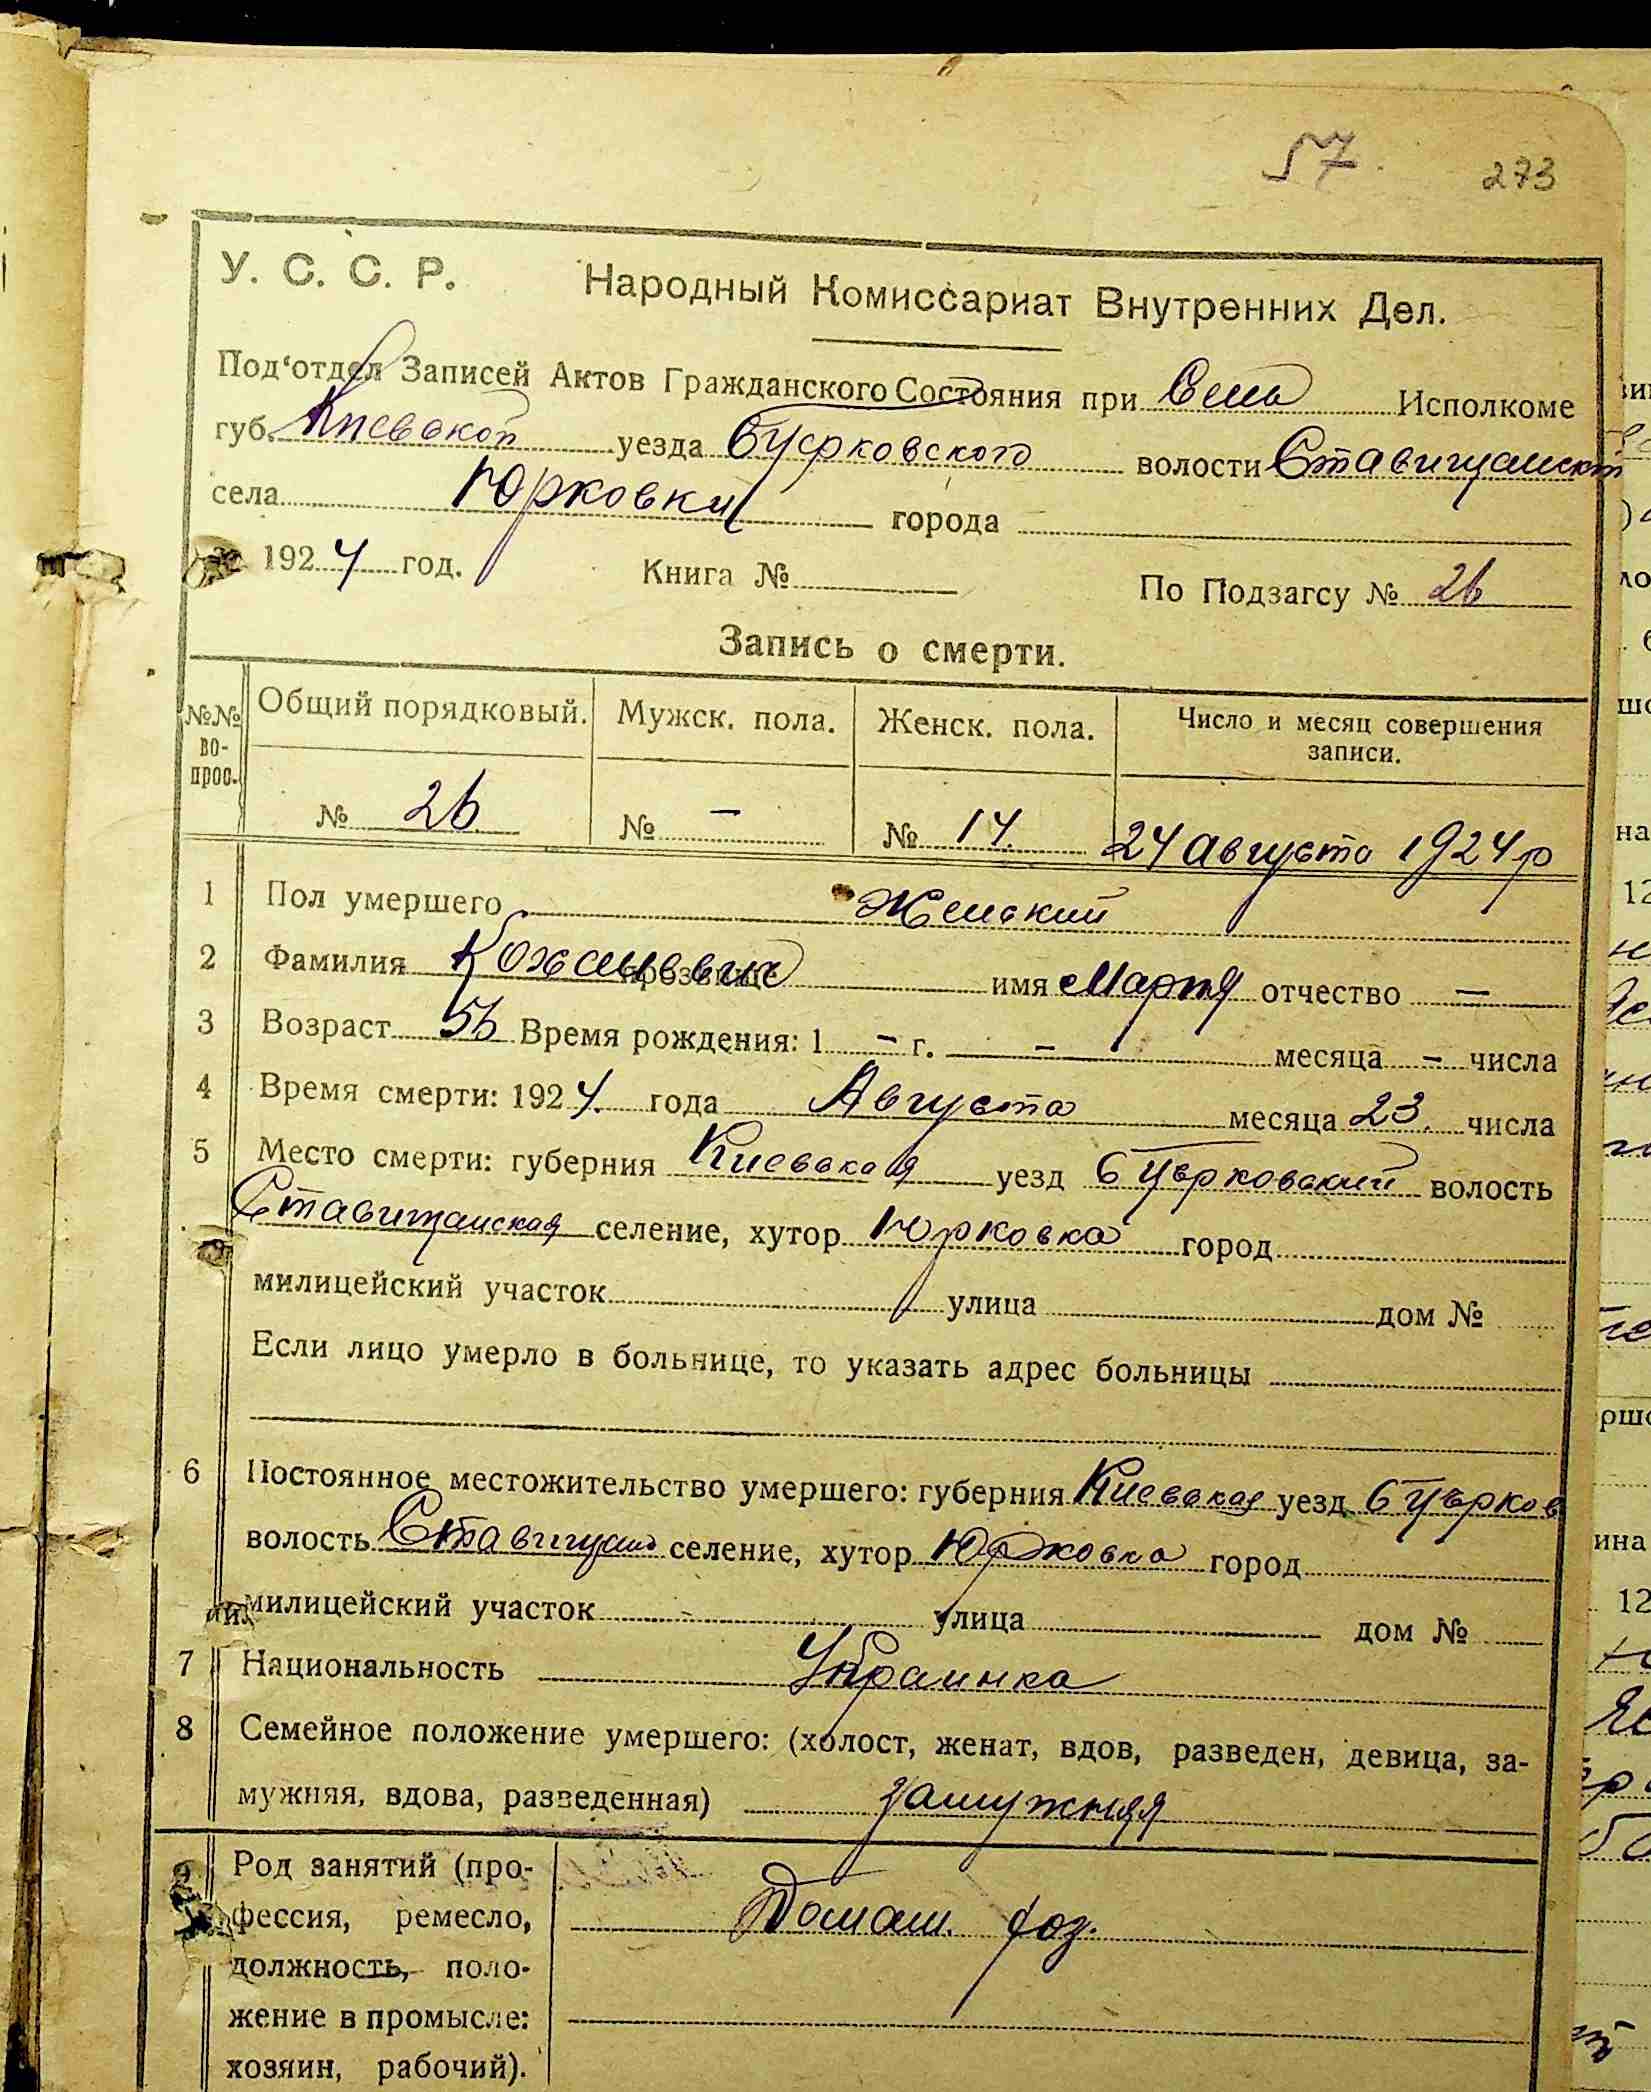 57. 273
У. С. С. Р. Народный Комиссариат Внутренних Дел.
Под'отдел Записей Актов Гражданского Состояния при Сель Исполкоме
губ. Киевской уезда Бцерковского волости Ставищанской
села Юрковки города
1924 год. Книга № По Подзагсу № 26
Запись о смерти.
№№ во-прос. Общий порядковый. Мужск. пола. Женск. пола. Число и месяц совершения записи.
№ 26 № – № 14. 24 Августа 1924 р
1 Пол умершего Женский
2 Фамилия прозвище имя Мария отчество –
3 Возраст 56 Время рождения: 1 – г. – месяца – числа
4 Время смерти: 1924. года Августа месяца 23. числа
5 Место смерти: губерния Киевская уезд Бцерковский волость
Ставищанская селение, хутор Юрковка город
милицейский участок улица дом №
Если лицо умерло в больнице, то указать адрес больницы
6 Постоянное местожительство умершего: губерния Киевская уезд Бцерков
волость Ставищан селение, хутор Юрковка город
милицейский участок улица дом №
7 Национальность Украинка
8 Семейное положение умершего: (холост, женат, вдов, разведен, девица, за-
мужняя, вдова, разведенная) замужняя
9 Род занятий (про-
фессия, ремесло, Домаш. хоз.
должность, поло-
жение в промысле:
хозяин, рабочий).